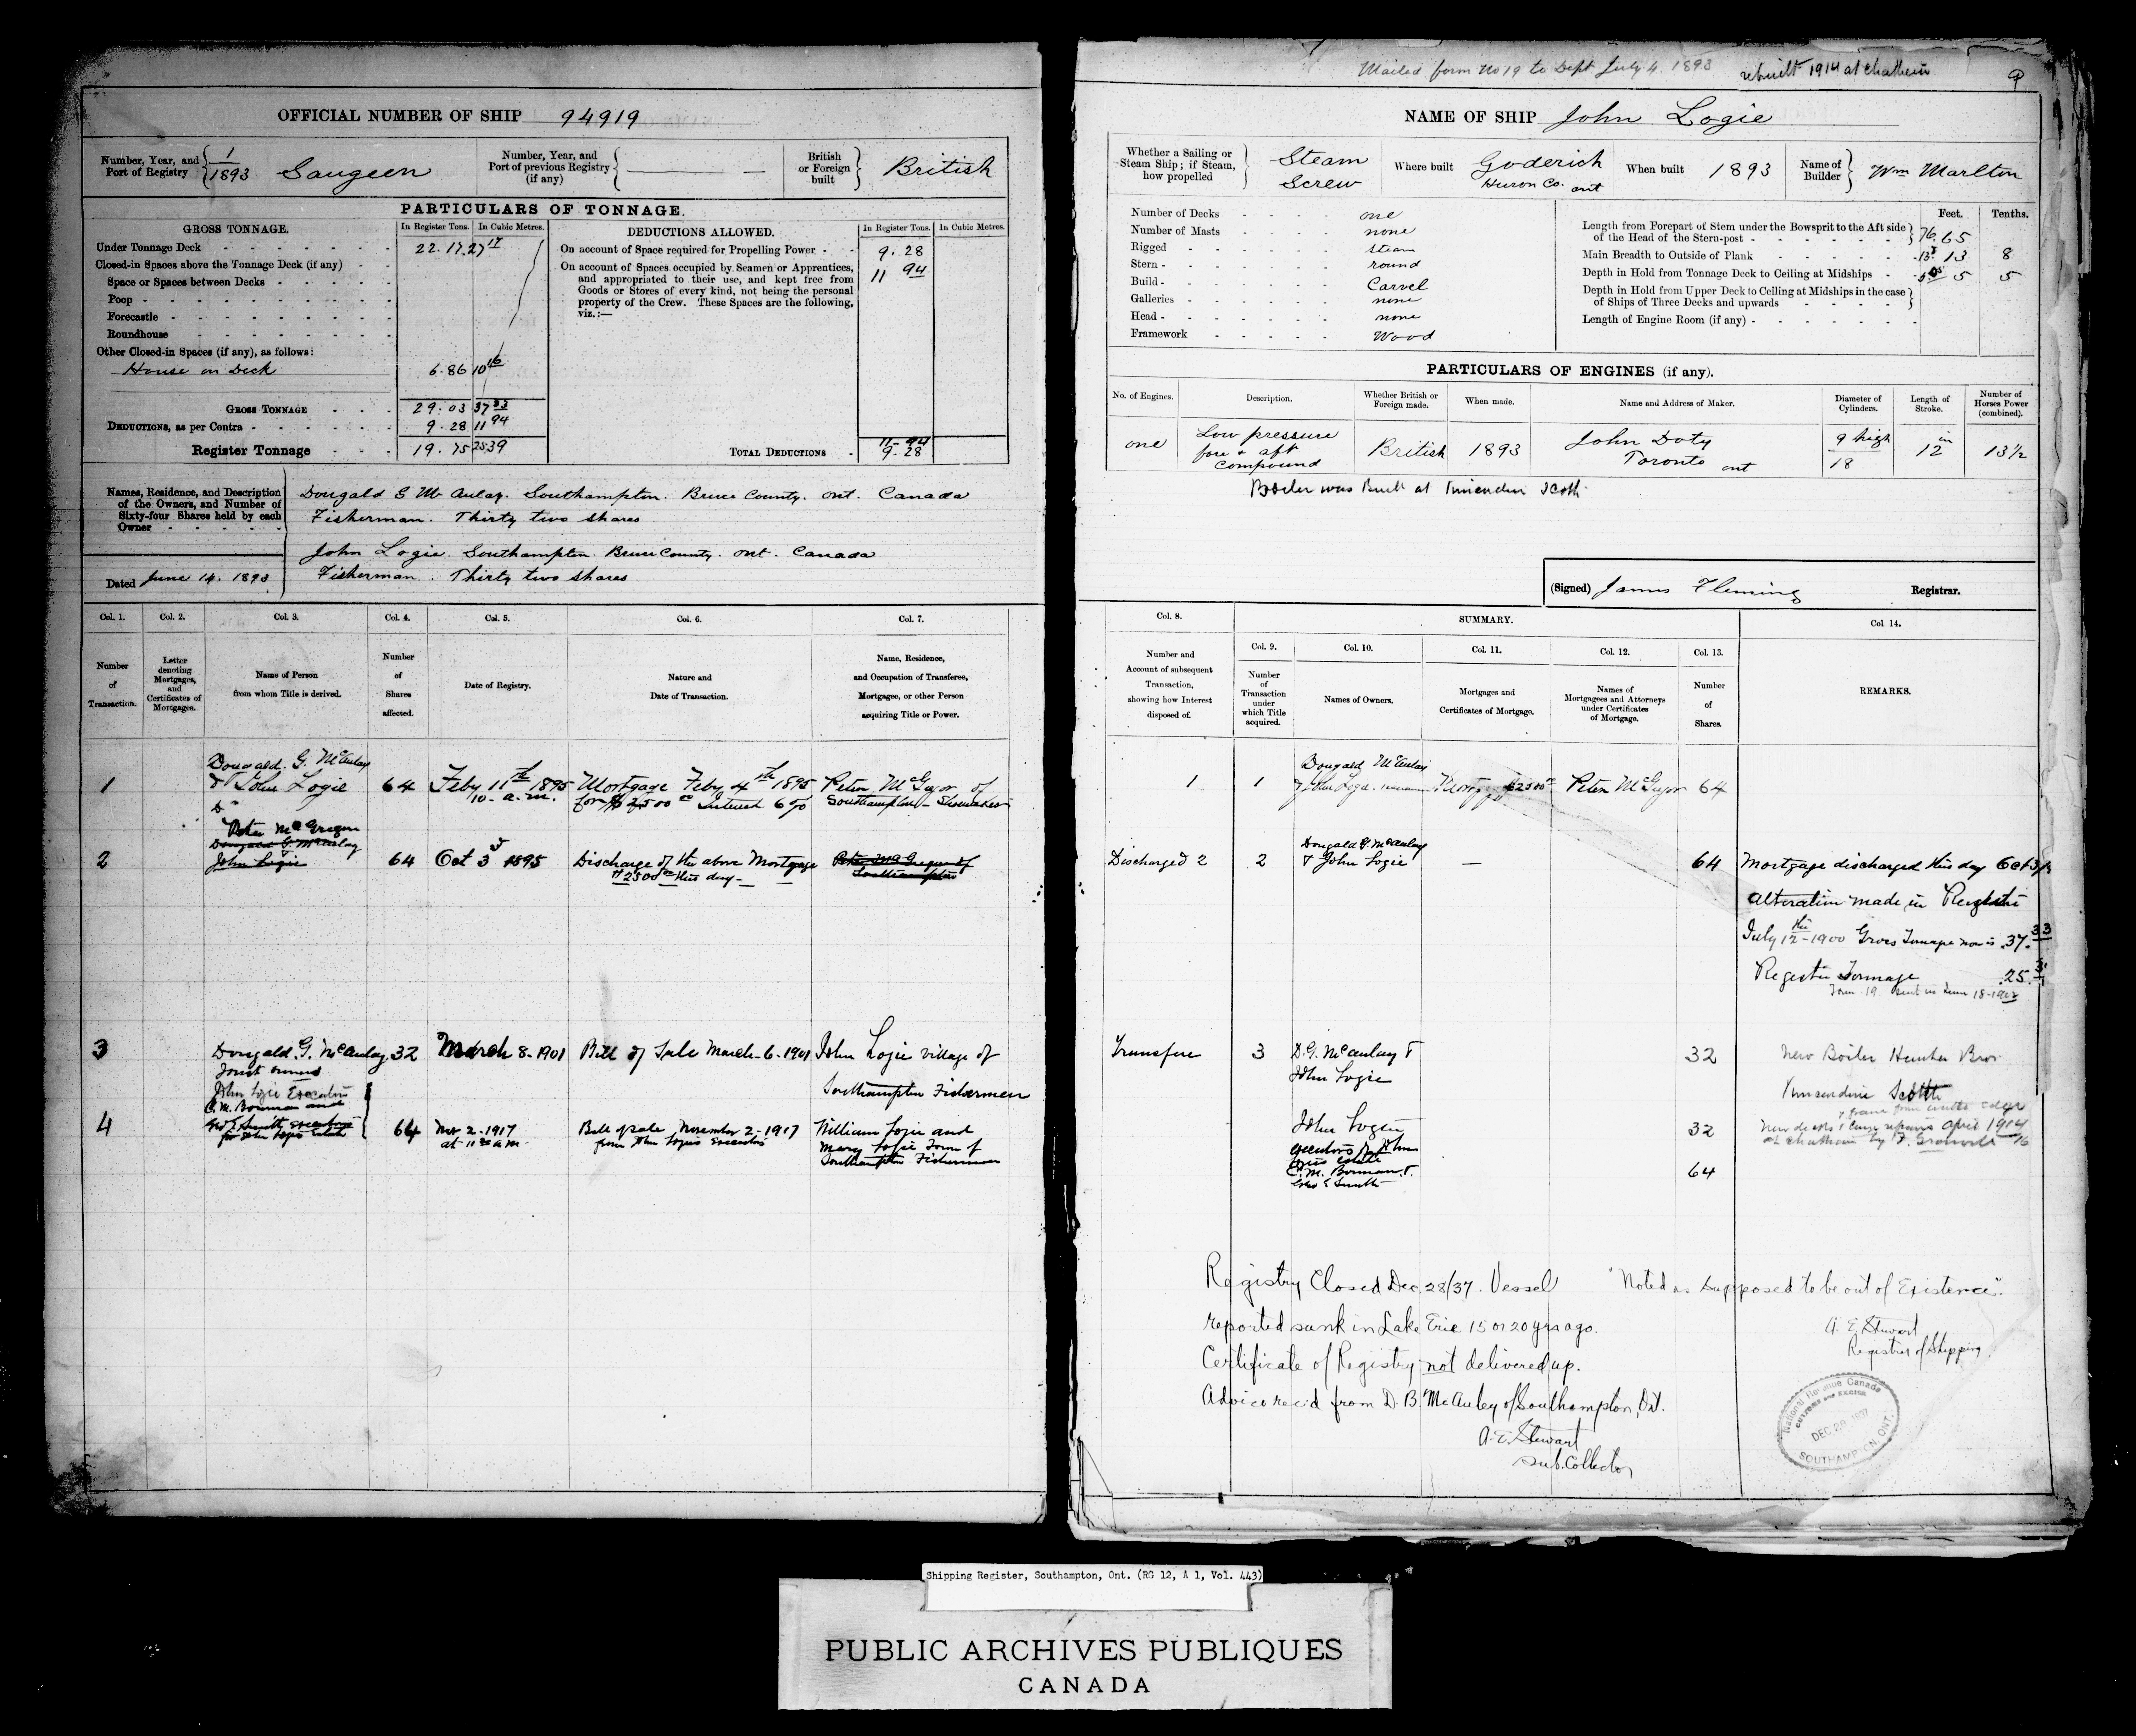 Mailed form No 19 to Dept July 4. 1893
rebuilt 1914 at Chatham
9
OFFICIAL NUMBER OF SHIP 94919
Number, Year, and Port of Registry 1/1893 Saugeen
Number, Year, and Port of previous Registry (if any)
British or Foreign built British
PARTICULARS OF TONNAGE.
GROSS TONNAGE.
In Register Tons.
In Cubic Metres.
Under Tonnage Deck 22.17 27 17
Closed-in Spaces above the Tonnage Deck (if any)
Space or Spaces between Decks
Poop
Forecastle
Roundhouse
Other Closed-in Spaces (if any), as follows:
House on Deck 6.86 10 16
GROSS TONNAGE 29.03 37 33
DEDUCTIONS, as per Contra 9.28 11 94
Register Tonnage 19.75 25 39
DEDUCTIONS ALLOWED.
In Register Tons.
In Cubic Metres.
On account of Space required for Propelling Power 9.28
On account of Spaces occupied by Seamen or Apprentices, 11 94
and appropriated to their use, and kept free from
Goods or Stores of every kind, not being the personal
property of the Crew. These Spaces are the following,
viz.:—
TOTAL DEDUCTIONS 11-94
9.28
Names, Residence, and Description
of the Owners, and Number of
Sixty-four Shares held by each
Owner
Dougald G McAulay. Southampton. Bruce County. Ont. Canada
Fisherman. Thirty two shares
John Logie. Southampton. Bruce County. Ont. Canada
Fisherman. Thirty two shares
Dated June 14. 1893
NAME OF SHIP John Logie
Whether a Sailing or Steam Ship; if Steam, how propelled
Steam
Screw
Where built Goderich
Huron Co. Ont
When built 1893
Name of Builder Wm Marlton
Number of Decks one
Number of Masts none
Rigged steam
Stern round
Build Carvel
Galleries none
Head none
Framework Wood
Feet. Tenths.
Length from Forepart of Stem under the Bowsprit to the Aft side
of the Head of the Stern-post 65
Main Breadth to Outside of Plank 13 8
Depth in Hold from Tonnage Deck to Ceiling at Midships 5 5
Depth in Hold from Upper Deck to Ceiling at Midships in the case
of Ships of Three Decks and upwards
Length of Engine Room (if any)
PARTICULARS OF ENGINES (if any).
No. of Engines.
Description.
Whether British or Foreign made.
When made.
Name and Address of Maker.
Diameter of Cylinders.
Length of Stroke.
Number of Horses Power (combined).
one
Low pressure
fore & aft
Compound
British
1893
John Doty
Toronto Ont
9 high
18
12 in
13½
Boiler was Built at
(Signed) James Fleming Registrar.
Col. 1.
Col. 2.
Col. 3.
Col. 4.
Col. 5.
Col. 6.
Col. 7.
Number of Transaction.
Letter denoting Mortgages, and Certificates of Mortgages.
Name of Person from whom Title is derived.
Number of Shares affected.
Date of Registry.
Nature and Date of Transaction.
Name, Residence, and Occupation of Transferee, Mortgagee, or other Person acquiring Title or Power.
Col. 8.
SUMMARY.
Col. 14.
Col. 9.
Col. 10.
Col. 11.
Col. 12.
Col. 13.
Number and Account of subsequent Transaction, showing how Interest disposed of.
Number of Transaction under which Title acquired.
Names of Owners.
Mortgages and Certificates of Mortgage.
Names of Mortgagees and Attorneys under Certificates of Mortgage.
Number of Shares.
REMARKS.
1
Dougald. G. McAulay
& John Logie
64
Feby 11th 1895
10- a.m.
Mortgage Feby 4th 1895
for $2500 Interest 6 %
Peter McGregor of
Southampton - Shoemaker
2
Peter McGregor
Dougald G. McAulay
John Logie
64
Oct 3 1895
Discharge of the above Mortgage
$2500 this day
Peter McGregor of
Southampton
3
Dougald. G. McAulay
Joint owners
32
March 8-1901
Bill of Sale March-6-1901
John Logie village of
Southampton Fishermen
4
John Logie Executors
C. M. Bowman and
Geo E. Smith executors
for John Logie Estate
64
Nov 2-1917
at 11 a.m.
Bill of sale November 2-1917
from John Logies Executors
William Logie and
Mary Logie Town of
Southampton Fishermen
1
1
Dougald McAulay
& John Logie
Mortgage $2500
Peter McGregor
64
Discharged 2
2
Dougald G McAulay
& John Logie
64
Mortgage discharged this day Oct 3/
Alteration made in Register
July 12-1900 Gross Tunnage now is 37.33
Register Tonnage 25
Form 19 sent in June 18-1902
Transfere
3
D. G. McAulay &
John Logie
32
New Boiler Hunter Bros
Kincardine
John Logie
32
New decks
April 1914
at Chatham by
executors of John
Logies estate
C. M. Bowman &
Geo E Smith
64
Registry Closed Dec 28/37. Vessel
reported sunk in Lake Erie 15 or 20 yrs ago.
Certificate of Registry not delivered up.
Advice rec'd from D. B. McAuley of Southampton, Ont.
A. E. Stewart
Sub. Collector
"Noted as supposed to be out of Existence".
A. E. Stewart
Registrar of Shipping.
National Revenue Canada
CUSTOMS AND EXCISE
DEC 28 1937
SOUTHAMPTON, ONT.
Shipping Register, Southampton, Ont. (RG 12, A 1, Vol. 443)
PUBLIC ARCHIVES PUBLIQUES
CANADA